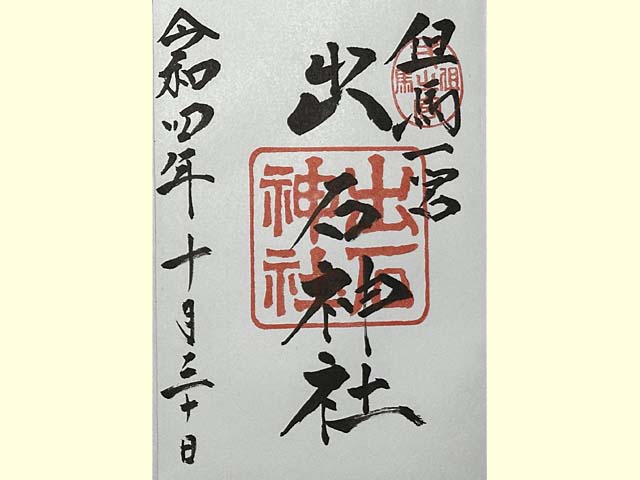 但馬一宮
出石神社
出石
神社
令和四年十月三十日